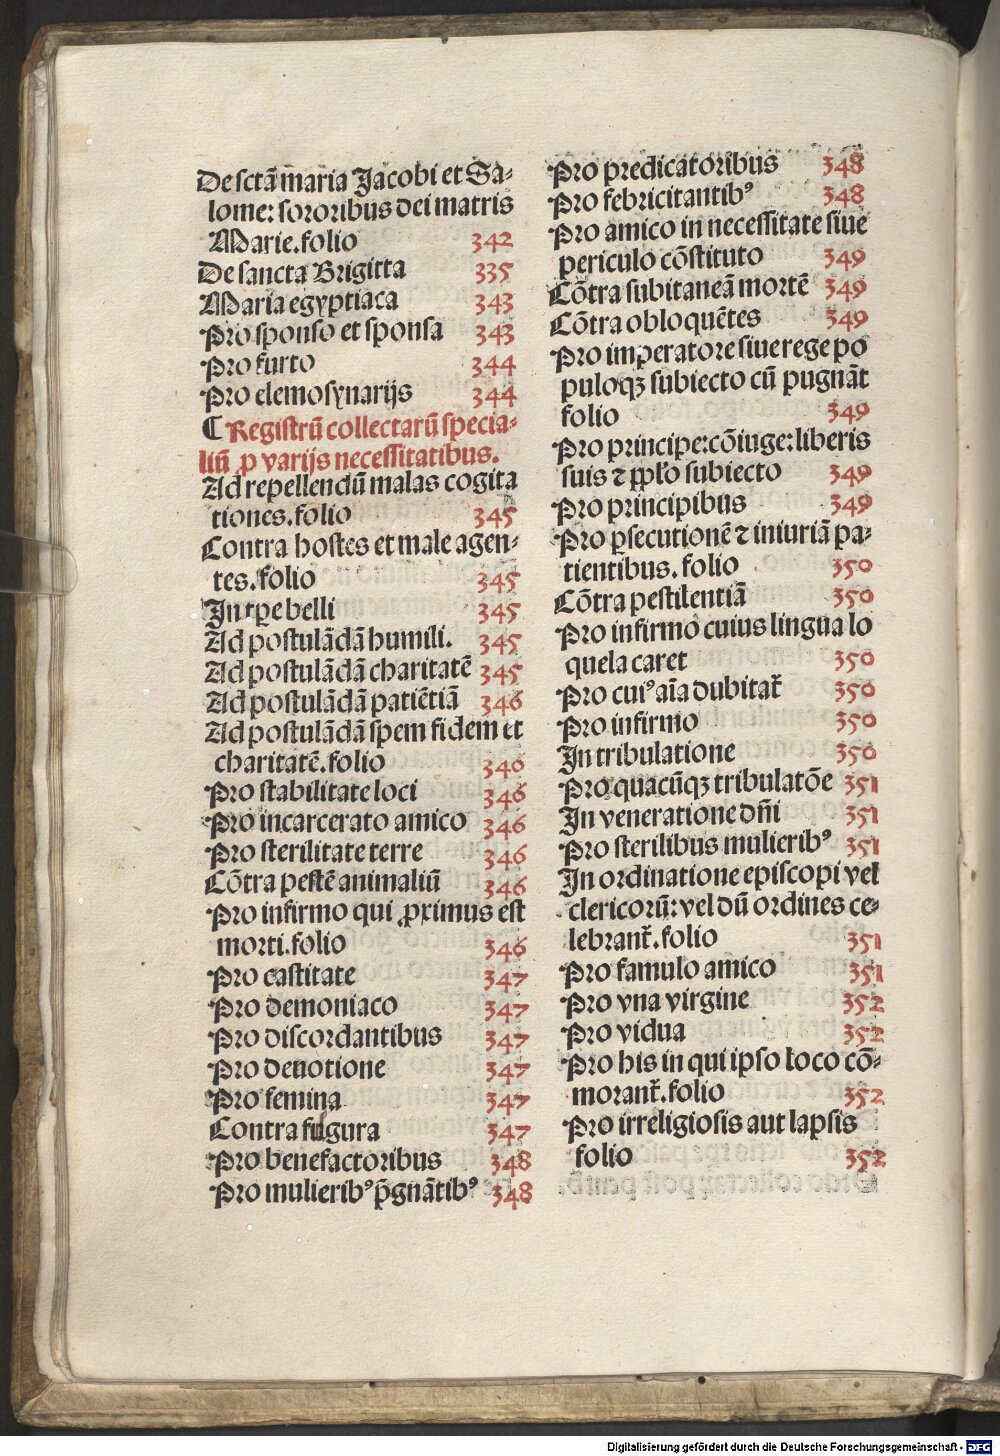 De sctā maria Jacobi et Sa⸗
lome: sororibus dei matris
Marie. folio 342
De sancta Brigitta 335
Maria egyptiaca 343
Pro sponso et sponsa 343
Pro furto 344
Pro elemosynarijs 344
¶ Registrū collectarū specia⸗
liū ꝓ varijs necessitatibus.
Ad repellendū malas cogita
tiones. folio 345
Contra hostes et male agen⸗
tes. folio 345
In tꝑe belli 345
Ad postulādā humili. 345
Ad postulādā charitatē 345
Ad postulādā patiētiā 346
Ad postulādā spem fidem et
charitatē. folio 346
Pro stabilitate loci 346
Pro incarcerato amico 346
Pro sterilitate terre 346
Cōtra pestē animaliū 346
Pro infirmo qui ꝓximus est
morti. folio 346
Pro castitate 347
Pro demoniaco 347
Pro discordantibus 347
Pro deuotione 347
Pro femina 347
Contra fulgura 347
Pro benefactoribus 348
Pro mulieribꝰ p̄gnātibꝰ 348
Pro predicatoribus 348
Pro febricitantibꝰ 348
Pro amico in necessitate siue
periculo cōstituto 349
Cōtra subitaneā mortē 349
Cōtra obloquētes 349
Pro imperatore siue rege po
puloqꝫ subiecto cū pugnāt
folio 349
Pro principe: cōiuge: liberis
suis ⁊ ppło subiecto 349
Pro principibus 349
Pro ꝑsecutionē ⁊ iniuriā pa⸗
tientibus. folio 350
Cōtra pestilentiā 350
Pro infirmo cuius lingua lo
quela caret 350
Pro cuiꝰ aīa dubitat᷑ 350
Pro infirmo 350
In tribulatione 350
Pro quacūqꝫ tribulatōe 351
In veneratione dn̄i 351
Pro sterilibus mulieribꝰ 351
In ordinatione episcopi vel
clericorū: vel dū ordines ce⸗
lebrant᷑. folio 351
Pro famulo amico 351
Pro vna virgine 352
Pro vidua 352
Pro his in qui ipso loco cō⸗
morant᷑. folio 352
Pro irreligiosis aut lapsis
folio 352
Digitalisierung gefördert durch die Deutsche Forschungsgemeinschaft - DFG